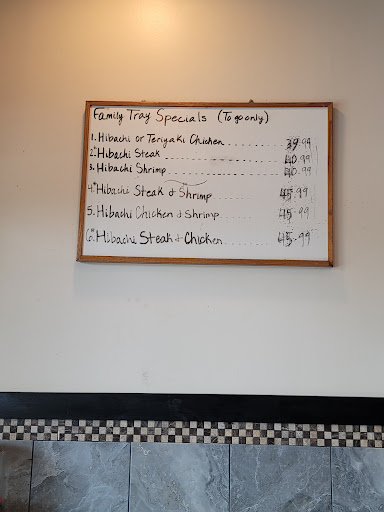 Family Tray Specials (To go only)
1. Hibachi or Teriyaki Chicken ........... 39.99
2. Hibachi Steak .................. 40.99
3. Hibachi Shrimp .................. 40.99
4. Hibachi Steak & Shrimp ........... 45.99
5. Hibachi Chicken & Shrimp .......... 45.99
6. Hibachi Steak & Chicken .......... 45.99